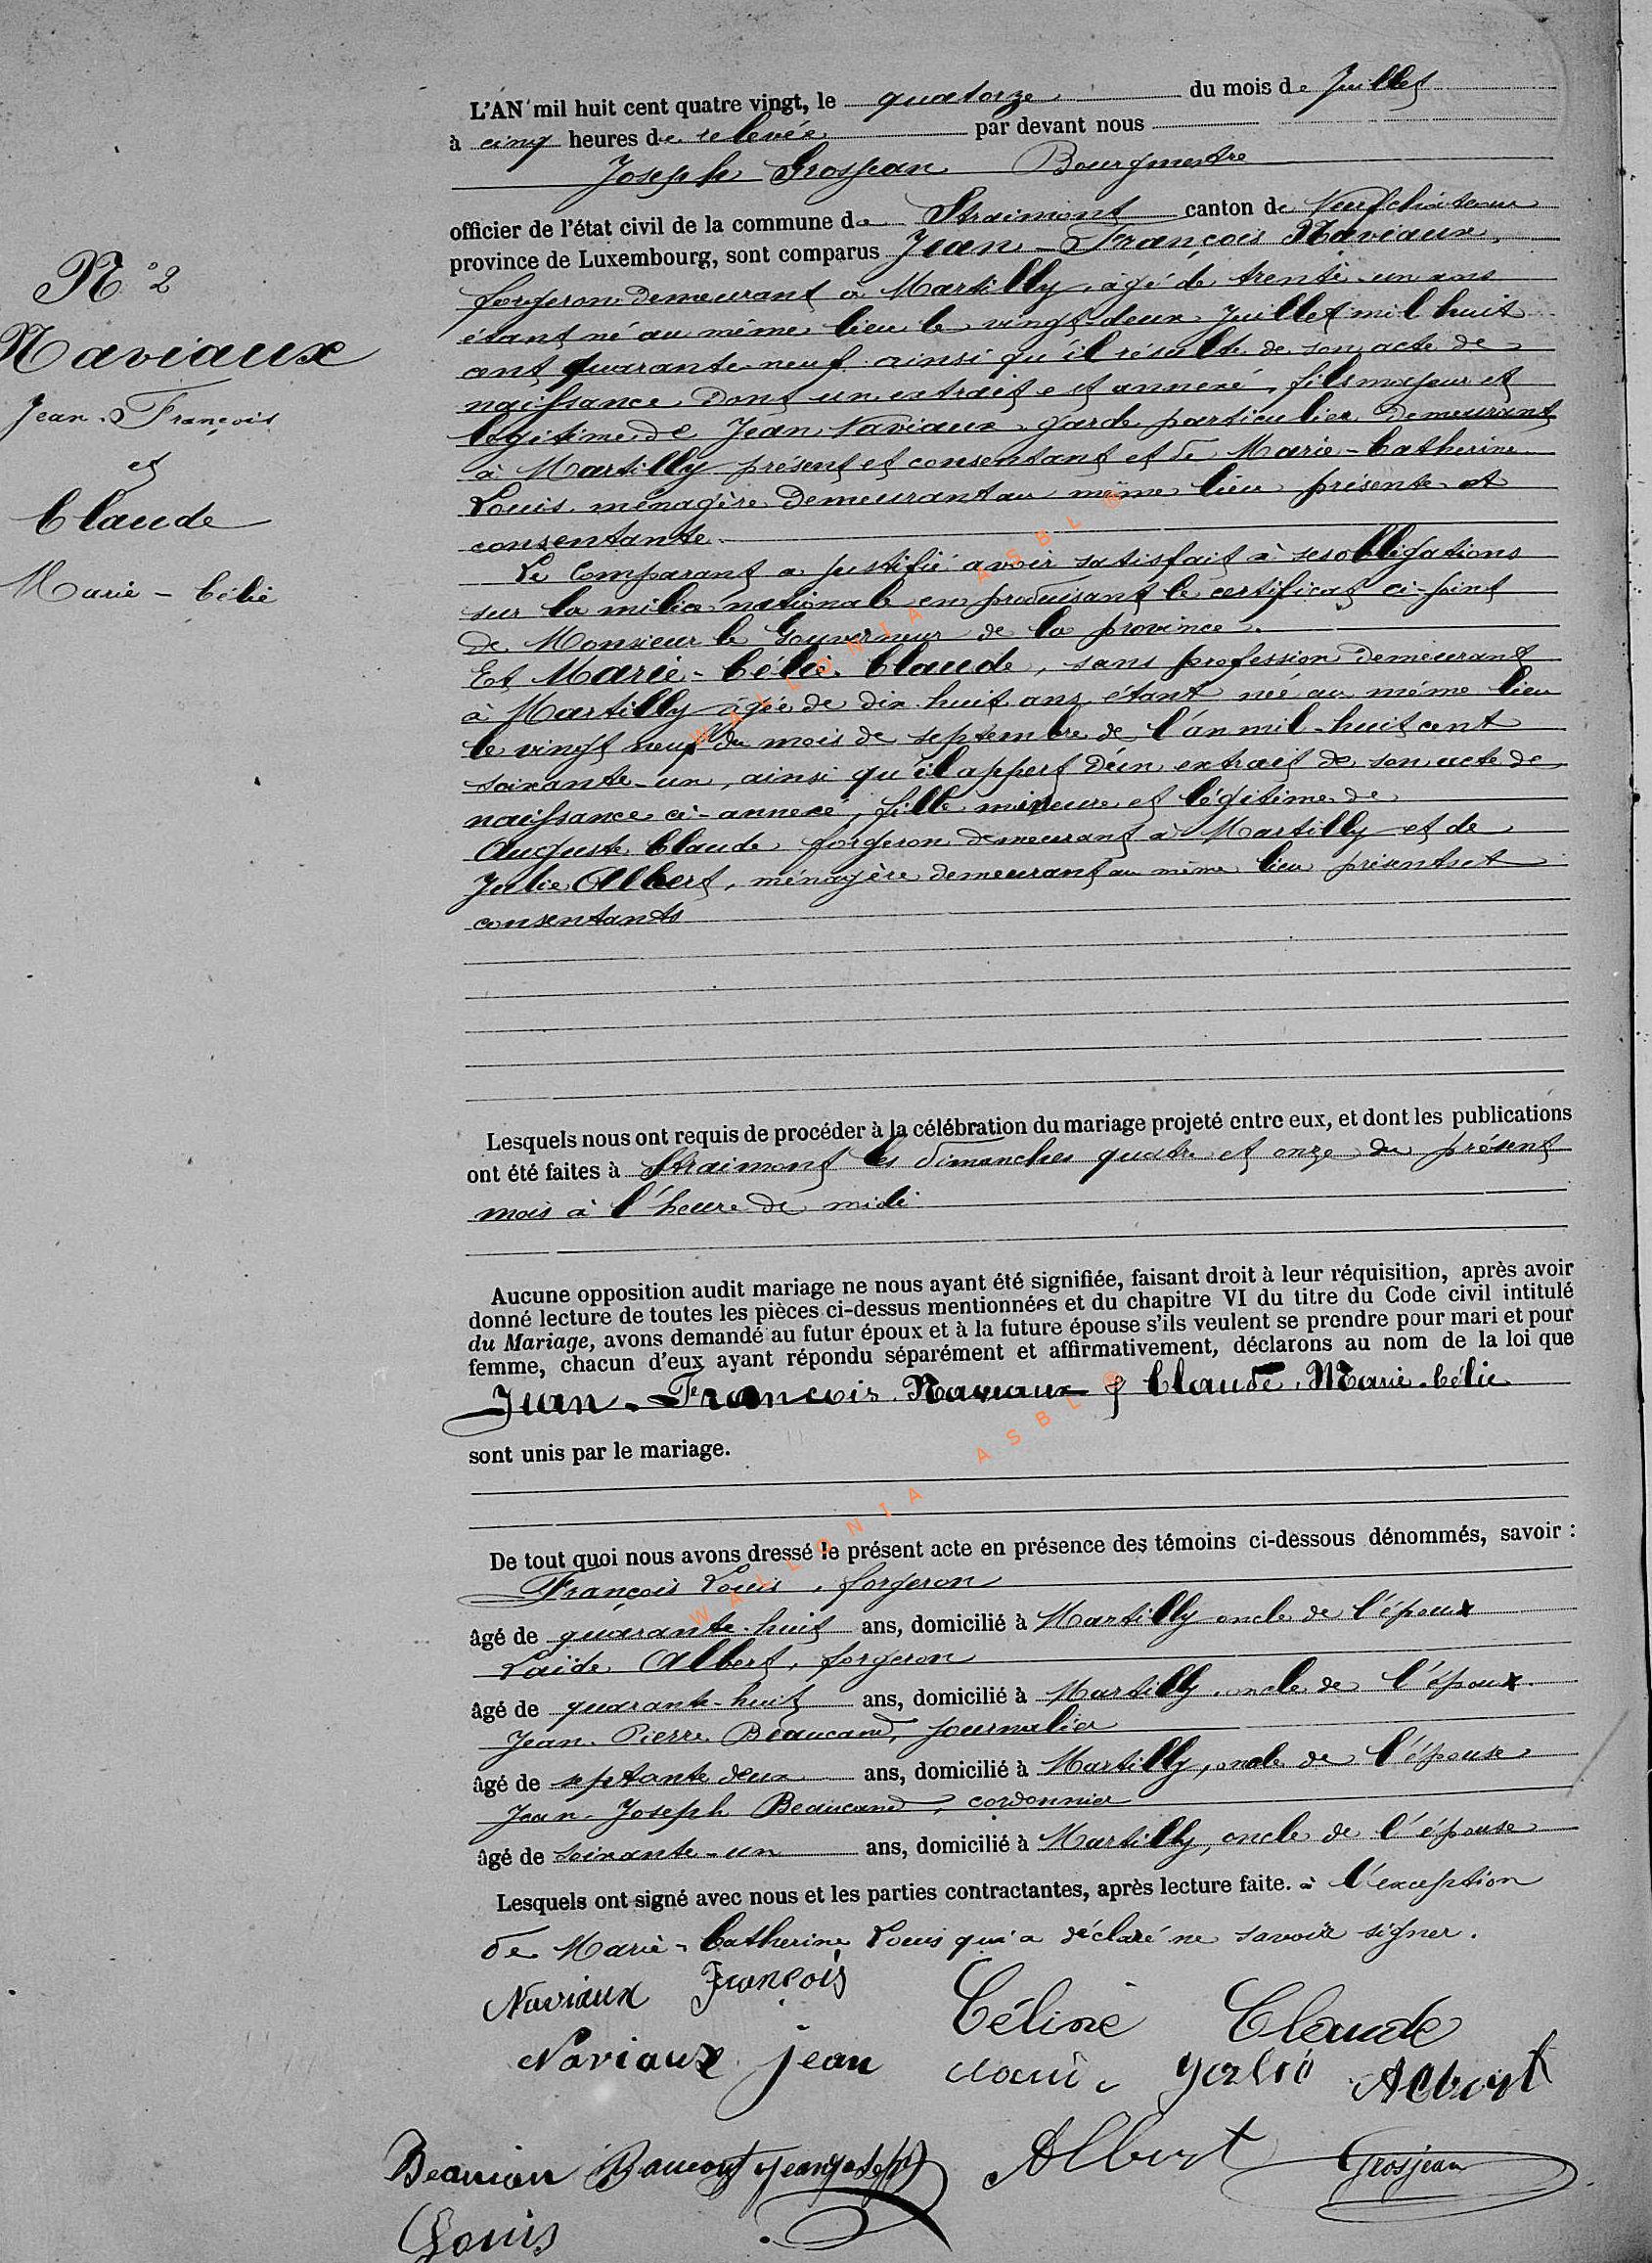 L'AN mil huit cent quatre vingt, le quatorze du mois de Juillet
à cinq heures de relevée par devant nous
Joseph Grosjean Bourgmestre
officier de l'état civil de la commune de Straimont canton de Neufchâteau
province de Luxembourg, sont comparus Jean-François Naviaux,
forgeron demeurant à Martilly, âgé de trente-un ans
étant né au même lieu le vingt-deux Juillet mil huit
cent quarante-neuf ainsi qu'il résulte de son acte de
naissance dont un extrait est annexé, fils majeur et
légitime de Jean Naviaux garde particulier demeurant
à Martilly présent et consentant et de Marie-Catherine
Louis ménagère demeurant au même lieu présente et
consentante.
Le comparant a justifié avoir satisfait à ses obligations
sur la milice nationale en produisant le certificat ci-joint
de Monsieur le Gouverneur de la province.
Et Marie-Célie Claude, sans profession demeurant
à Martilly âgée de dix-huit ans étant née au même lieu
le vingt neuf du mois de septembre de l'an mil-huit cent
soixante-un, ainsi qu'il appert d'un extrait de son acte de
naissance ci-annexé, fille mineure et légitime de
Auguste Claude forgeron demeurant à Martilly et de
Julie Albert, ménagère demeurant au même lieu présents et
consentants
N° 2
Naviaux
Jean-François
et
Claude
Marie-Célie
Lesquels nous ont requis de procéder à la célébration du mariage projeté entre eux, et dont les publications
ont été faites à Straimont les dimanches quatre et onze du présent
mois à l'heure de midi
Aucune opposition audit mariage ne nous ayant été signifiée, faisant droit à leur réquisition, après avoir
donné lecture de toutes les pièces ci-dessus mentionnées et du chapitre VI du titre du Code civil intitulé
du Mariage, avons demandé au futur époux et à la future épouse s'ils veulent se prendre pour mari et pour
femme, chacun d'eux ayant répondu séparément et affirmativement, déclarons au nom de la loi que
Jean-François Naviaux et Claude, Marie-Célie
sont unis par le mariage.
De tout quoi nous avons dressé le présent acte en présence des témoins ci-dessous dénommés, savoir :
François Louis, forgeron
âgé de quarante-huit ans, domicilié à Martilly oncle de l'époux
Albert, forgeron
âgé de quarante-huit ans, domicilié à Martilly, oncle de l'époux.
Jean-Pierre Beaucand, journalier
âgé de septante deux ans, domicilié à Martilly, oncle de l'épouse
Jean-Joseph Beaucand, cordonnier
âgé de soixante-un ans, domicilié à Martilly, oncle de l'épouse
Lesquels ont signé avec nous et les parties contractantes, après lecture faite. à l'exception
de Marie-Catherine Louis qui a déclaré ne savoir signer.
Naviaux François Céline Claude
Naviaux jean Albert
jeanjoseph Albert Grosjean
Louis
WALLONIA ASBL ®
WALLONIA ASBL ®